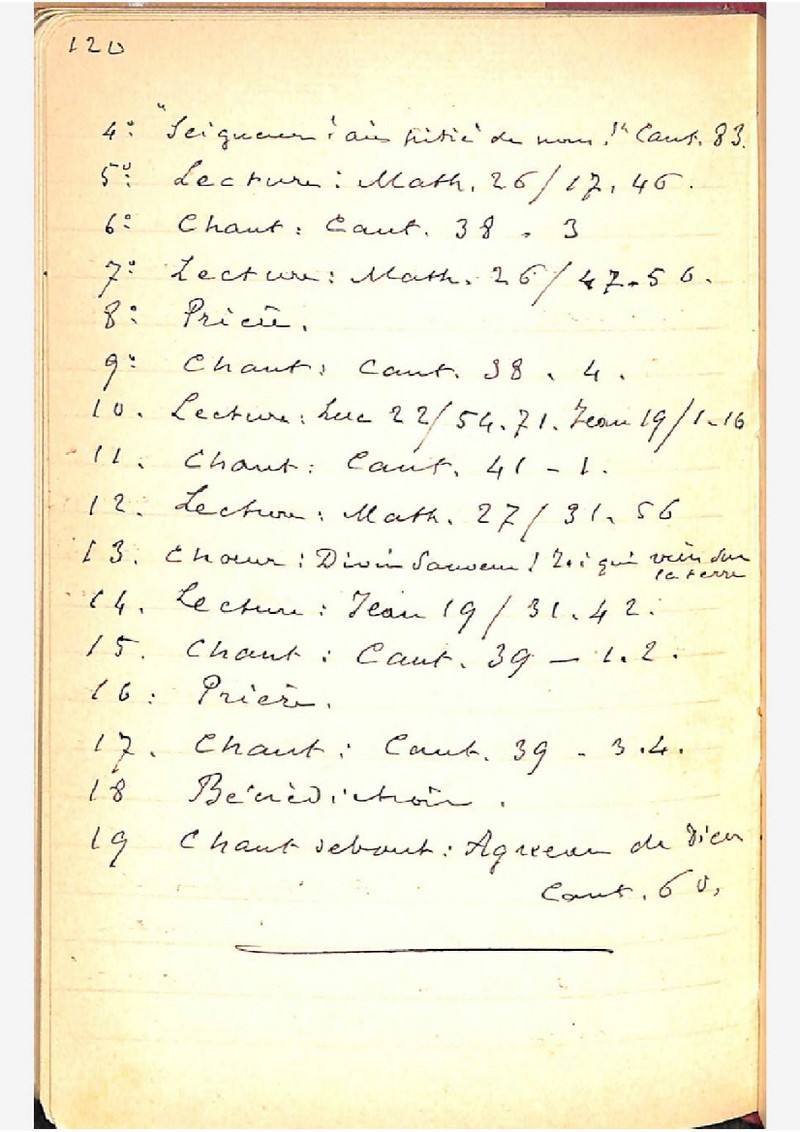 120
4º: "Seigneur! aie pitié de nous!" Cant. 83.
5º: Lecture: Math. 26/17.46.
6º: Chant: Cant. 38.3
7º: Lecture: Math. 26/47-56.
8º: Prière.
9º: Chant: Cant. 38.4.
10. Lecture: Luc 22/54.71. Jean 19/1-16
11. Chant: Cant. 41-1.
12. Lecture: Math. 27/31.56
13. Choeur: Divin Sauveur! Toi qui vins sur
la terre
14. Lecture: Jean 19/31.42.
15. Chant: Cant. 39 — 1.2.
16: Prière.
17. Chant: Cant. 39 - 3.4.
18 Bénédiction.
19 Chant debout: Agneau de Dieu
Cant. 60.